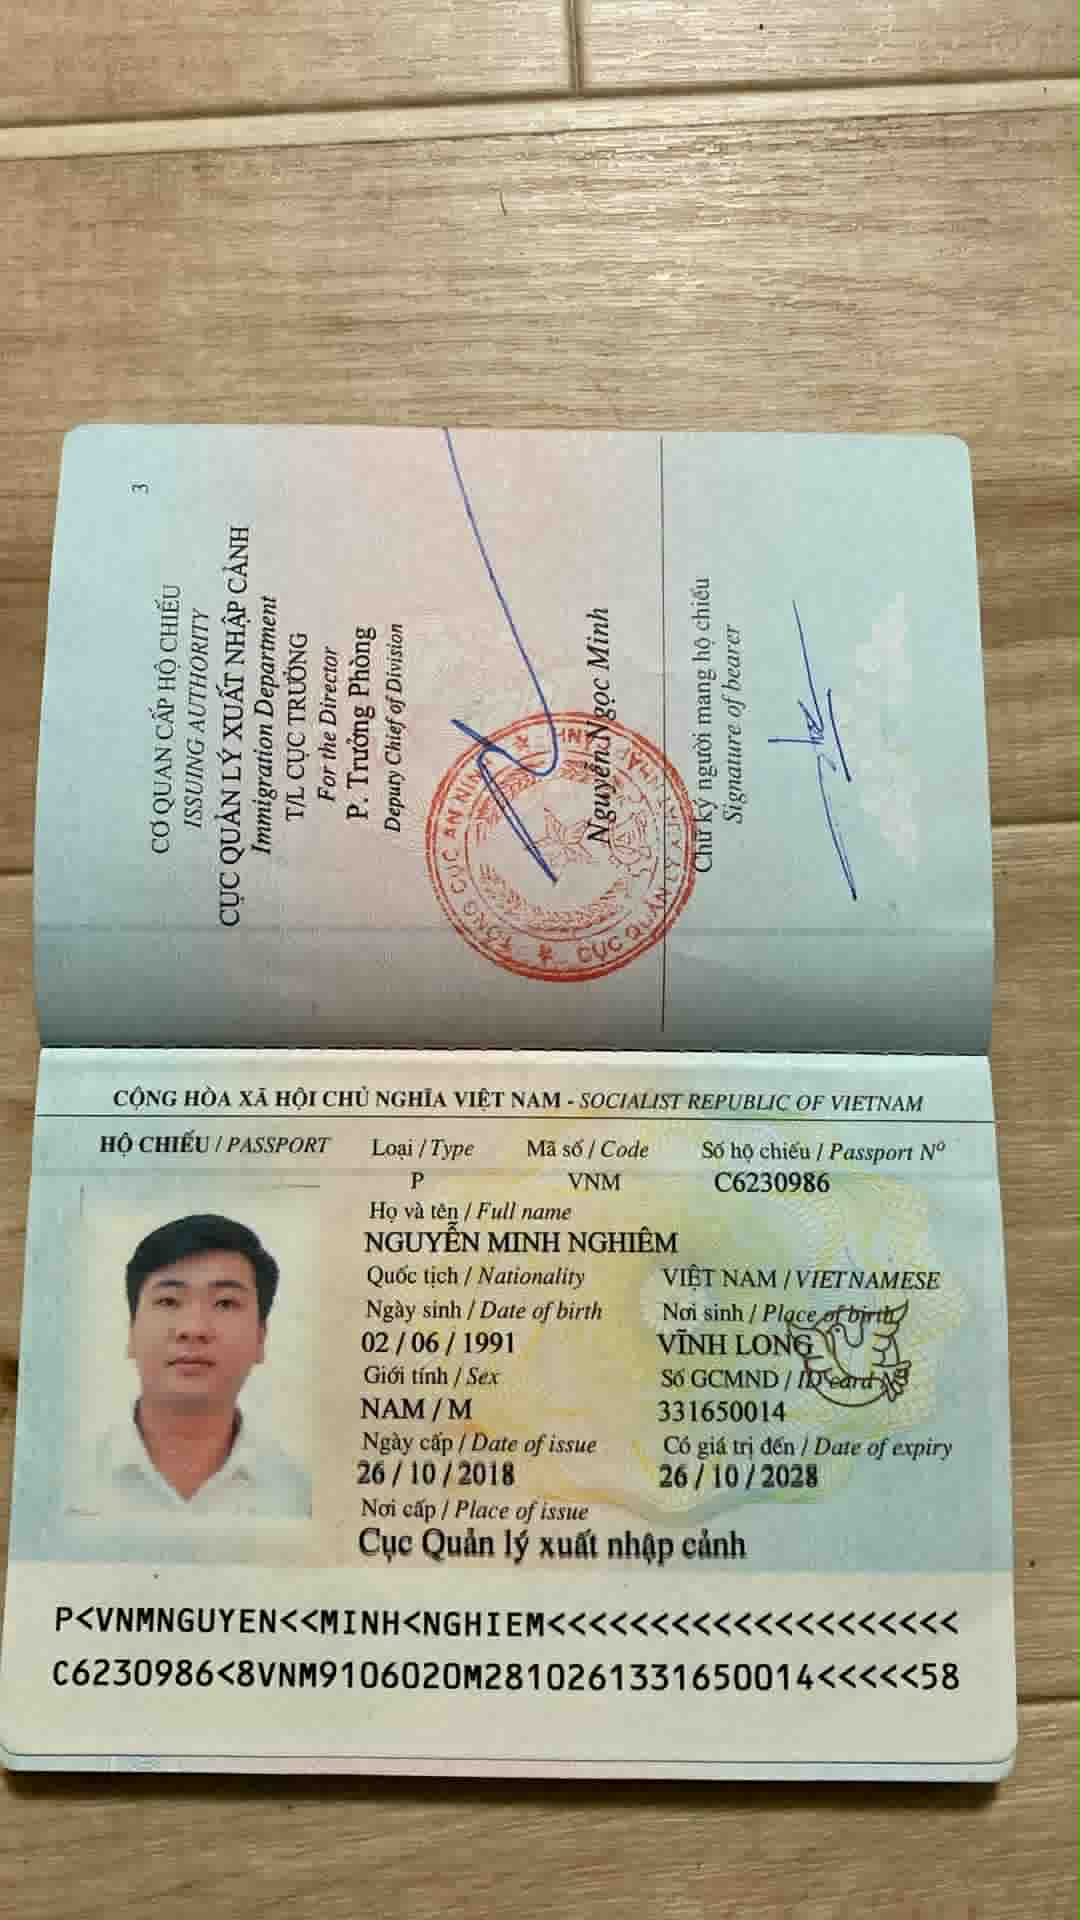 3
CƠ QUAN CẤP HỘ CHIẾU
ISSUING AUTHORITY
CỤC QUẢN LÝ XUẤT NHẬP CẢNH
Immigration Department
T/L CỤC TRƯỞNG
For the Director
P. Trưởng Phòng
Deputy Chief of Division
Nguyễn Ngọc Minh
Chữ ký người mang hộ chiếu
Signature of bearer
CỘNG HÒA XÃ HỘI CHỦ NGHĨA VIỆT NAM - SOCIALIST REPUBLIC OF VIETNAM
HỘ CHIẾU / PASSPORT Loại / Type Mã số / Code Số hộ chiếu / Passport Nº
P VNM C6230986
Họ và tên / Full name
NGUYỄN MINH NGHIÊM
Quốc tịch / Nationality VIỆT NAM / VIETNAMESE
Ngày sinh / Date of birth Nơi sinh / Place of birth
02 / 06 / 1991 VĨNH LONG
Giới tính / Sex Số GCMND / ID card Nº
NAM / M 331650014
Ngày cấp / Date of issue Có giá trị đến / Date of expiry
26 / 10 / 2018 26 / 10 / 2028
Nơi cấp / Place of issue
Cục Quản lý xuất nhập cảnh
P<VNMNGUYEN<<MINH<NGHIEM<<<<<<<<<<<<<<<<<<<<
C6230986<8VNM9106020M2810261331650014<<<<<58